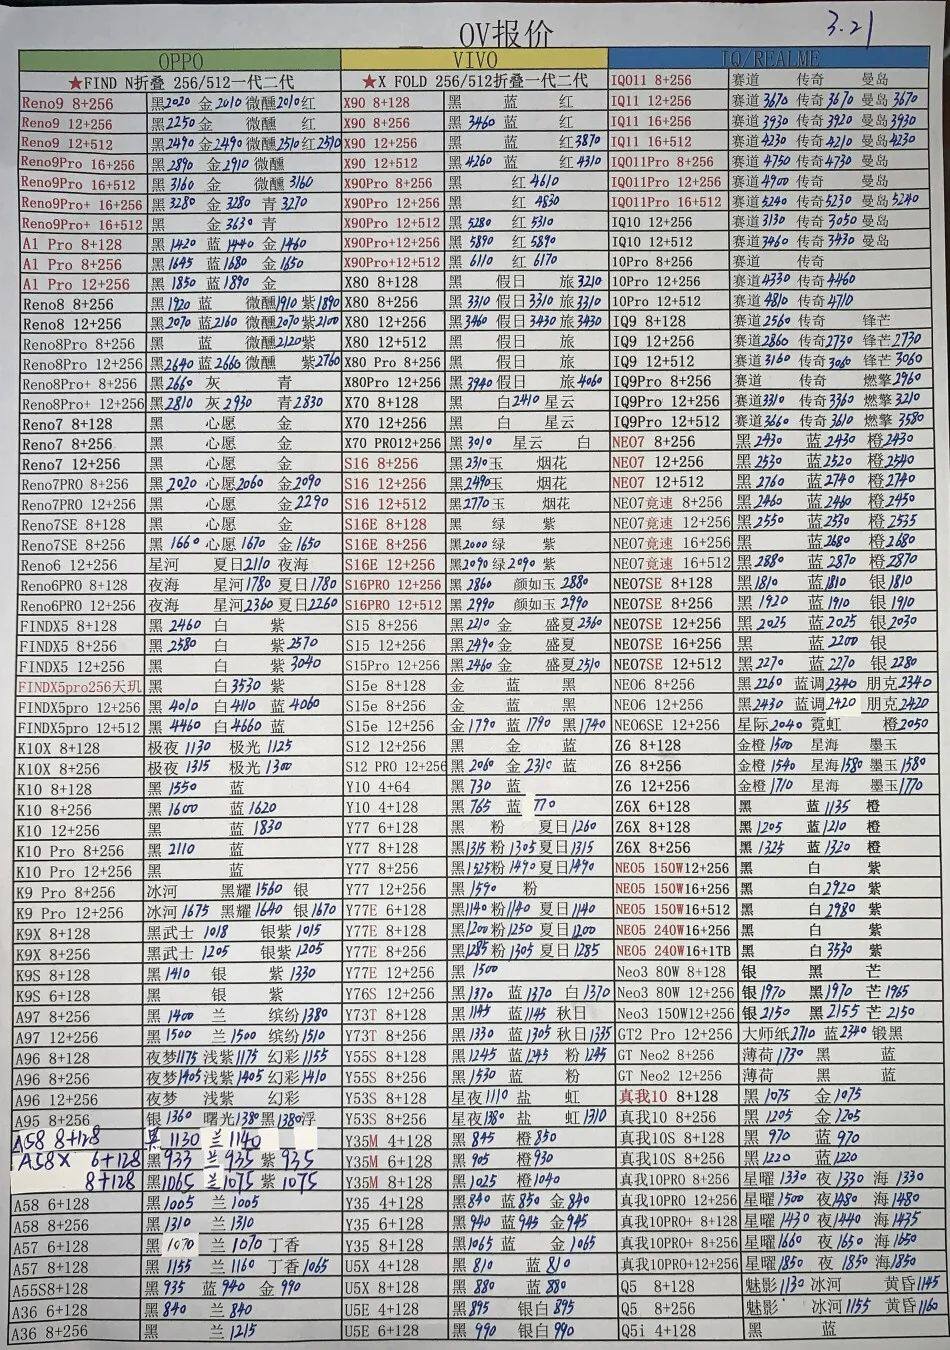 3.21
OV报价
OPPO VIVO IQ/REALME
★FIND N折叠 256/512一代二代 ★X FOLD 256/512折叠一代二代 IQO11 8+256 赛道 传奇 曼岛
Reno9 8+256 黑2020 金2010 微醺2010 红 X90 8+128 黑 蓝 红 IQ11 12+256 赛道3670 传奇3670 曼岛3670
Reno9 12+256 黑2250 金 微醺 红 X90 8+256 黑3460 蓝 红 IQ11 16+256 赛道3930 传奇3920 曼岛3930
Reno9 12+512 黑2490 金2490 微醺2510 红2510 X90 12+256 黑 蓝 红3870 IQ11 16+512 赛道4230 传奇4210 曼岛4230
Reno9Pro 16+256 黑2890 金2910 微醺 X90 12+512 黑4260 蓝 红4310 IQO11Pro 8+256 赛道4750 传奇4730 曼岛
Reno9Pro 16+512 黑3160 金 微醺3160 X90Pro 8+256 黑 红4610 IQO11Pro 12+256 赛道4900 传奇 曼岛
Reno9Pro+ 16+256 黑3280 金3280 青3270 X90Pro 12+256 黑 红4830 IQO11Pro 16+512 赛道5240 传奇5230 曼岛5240
Reno9Pro+ 16+512 黑 金3630 青 X90Pro 12+512 黑5280 红5310 IQ10 12+256 赛道3130 传奇3050 曼岛
A1 Pro 8+128 黑1420 蓝1440 金1460 X90Pro+12+256 黑5890 红5890 IQ10 12+512 赛道3460 传奇3430 曼岛
A1 Pro 8+256 黑1645 蓝1680 金1650 X90Pro+12+512 黑6110 红6170 10Pro 8+256 赛道 传奇
A1 Pro 12+256 黑1850 蓝1890 金 X80 8+128 黑 假日 旅3210 10Pro 12+256 赛道4330 传奇4460
Reno8 8+256 黑1920 蓝 微醺1910 紫1890 X80 8+256 黑3310 假日3310 旅3310 10Pro 12+512 赛道4810 传奇4710
Reno8 12+256 黑2070 蓝2160 微醺2070 紫2100 X80 12+256 黑3460 假日3430 旅3430 IQ9 8+128 赛道2560 传奇 锋芒
Reno8Pro 8+256 黑 蓝 微醺2120 紫 X80 12+512 黑 假日 旅 IQ9 12+256 赛道2860 传奇2730 锋芒2730
Reno8Pro 12+256 黑2640 蓝2660 微醺 紫2760 X80 Pro 8+256 黑 假日 旅 IQ9 12+512 赛道3160 传奇3060 锋芒3060
Reno8Pro+ 8+256 黑2660 灰 青 X80Pro 12+256 黑3940 假日 旅4060 IQ9Pro 8+256 赛道 传奇 燃擎2960
Reno8Pro+ 12+256 黑2810 灰2930 青2830 X70 8+128 黑 白2410 星云 IQ9Pro 12+256 赛道3310 传奇3360 燃擎3210
Reno7 8+128 黑 心愿 金 X70 12+256 黑 白 星云 IQ9Pro 12+512 赛道3660 传奇3610 燃擎3580
Reno7 8+256 黑 心愿 金 X70 PRO12+256 黑3010 星云 白 NEO7 8+256 黑2430 蓝2430 橙2430
Reno7 12+256 黑 心愿 金 S16 8+256 黑2310 玉 烟花 NEO7 12+256 黑2530 蓝2520 橙2540
Reno7PRO 8+256 黑2020 心愿2060 金2090 S16 12+256 黑2490 玉 烟花 NEO7 12+512 黑2760 蓝2740 橙2740
Reno7PRO 12+256 黑 心愿 金2290 S16 12+512 黑2770 玉 烟花 NEO7竞速 8+256 黑2460 蓝2460 橙2450
Reno7SE 8+128 黑 心愿 金 S16E 8+128 黑 绿 紫 NEO7竞速 12+256 黑2550 蓝2530 橙2535
Reno7SE 8+256 黑1660 心愿1670 金1650 S16E 8+256 黑2000 绿 紫 NEO7竞速 16+256 黑 蓝2680 橙2680
Reno6 12+256 星河 夏日2110 夜海 S16E 12+256 黑2090 绿2090 紫 NEO7竞速 16+512 黑2880 蓝2870 橙2870
Reno6PRO 8+128 夜海 星河1780 夏日1780 S16PRO 12+256 黑2860 颜如玉2880 NEO7SE 8+128 黑1810 蓝1810 银1810
Reno6PRO 12+256 夜海 星河2360 夏日2260 S16PRO 12+512 黑2990 颜如玉2990 NEO7SE 8+256 黑1920 蓝1910 银1910
FINDX5 8+128 黑2460 白 紫 S15 8+256 黑2210 金 盛夏2360 NEO7SE 12+256 黑2025 蓝2025 银2030
FINDX5 8+256 黑2580 白 紫2570 S15 12+256 黑2490 金 盛夏 NEO7SE 16+256 黑 蓝2200 银
FINDX5 12+256 黑 白 紫3040 S15Pro 12+256 黑2460 金 盛夏2510 NEO7SE 12+512 黑2270 蓝2270 银2280
FINDX5pro256天玑 黑 白3530 紫 S15e 8+128 金 蓝 黑 NEO6 8+256 黑2260 蓝调2340 朋克2340
FINDX5pro 12+256 黑4010 白4110 蓝4060 S15e 8+256 金 蓝 黑 NEO6 12+256 黑2430 蓝调2420 朋克2420
FINDX5pro 12+512 黑4460 白4660 蓝 S15e 12+256 金1790 蓝1790 黑1740 NEO6SE 12+256 星际2040 霓虹 橙2050
K10X 8+128 极夜1130 极光1125 S12 12+256 黑 金 蓝 Z6 8+128 金橙1500 星海 墨玉
K10X 8+256 极夜1315 极光1300 S12 PRO 12+256 黑2060 金2310 蓝 Z6 8+256 金橙1540 星海1580 墨玉1580
K10 8+128 黑1550 蓝 Y10 4+64 黑730 蓝 Z6 12+256 金橙1710 星海 墨玉1770
K10 8+256 黑1600 蓝1620 Y10 4+128 黑765 蓝770 Z6X 6+128 黑 蓝1135 橙
K10 12+256 黑 蓝1830 Y77 6+128 黑 粉 夏日1260 Z6X 8+128 黑1205 蓝1210 橙
K10 Pro 8+256 黑2110 蓝 Y77 8+128 黑1315 粉1305 夏日1315 Z6X 8+256 黑1325 蓝1320 橙
K10 Pro 12+256 黑 蓝 Y77 8+256 黑1525 粉1490 夏日1490 NEO5 150W12+256 黑 白 紫
K9 Pro 8+256 冰河 黑耀1560 银 Y77 12+256 黑1590 粉 NEO5 150W16+256 黑 白2920 紫
K9 Pro 12+256 冰河1675 黑耀1640 银1670 Y77E 6+128 黑1140 粉1140 夏日1140 NEO5 150W16+512 黑 白2980 紫
K9X 8+128 黑武士1018 银紫1015 Y77E 8+128 黑1200 粉1250 夏日1200 NEO5 240W16+256 黑 白 紫
K9X 8+256 黑武士1205 银紫1205 Y77E 8+256 黑1285 粉1305 夏日1285 NEO5 240W16+1TB 黑 白3530 紫
K9S 8+128 黑1410 银 紫1330 Y77E 12+256 黑1500 Neo3 80W 8+128 银 黑 芒
K9S 6+128 黑 银 紫 Y76S 12+256 黑1370 蓝1370 白1370 Neo3 80W 12+256 银1970 黑1970 芒1965
A97 8+128 黑1400 兰 缤纷1380 Y73T 8+128 黑1145 蓝1145 秋日 Neo3 150W12+256 银2150 黑2155 芒2150
A97 12+256 黑1500 兰1500 缤纷1510 Y73T 8+256 黑1330 蓝1305 秋日1335 GT2 Pro 12+256 大师纸2710 蓝2340 锻黑
A96 8+128 夜梦1175 浅紫1175 幻彩1155 Y55S 8+128 黑1245 蓝1245 粉1245 GT Neo2 8+256 薄荷1730 黑 蓝
A96 8+256 夜梦1405 浅紫1405 幻彩1410 Y55S 8+256 黑1530 蓝 粉 GT Neo2 12+256 薄荷 黑 蓝
A96 12+256 夜梦 浅紫 幻彩 Y53S 8+128 星夜1110 盐 虹 真我10 8+128 黑1075 金1075
A95 8+256 银1360 曙光1380 黑1380 浮 Y53S 8+256 星夜1380 盐 虹1310 真我10 8+256 黑1205 金1205
A58 8+128 黑1130 兰1140 Y35M 4+128 黑845 橙850 真我10S 8+128 黑970 蓝970
A58X 6+128 黑933 兰935 紫935 Y35M 6+128 黑905 橙930 真我10S 8+256 黑1220 蓝1220
8+128 黑1065 兰1075 紫1075 Y35M 8+128 黑1025 橙1040 真我10PRO 8+256 星曜1330 夜1330 海1330
A58 6+128 黑1005 兰1005 Y35 4+128 黑840 蓝850 金840 真我10PRO 12+256 星曜1500 夜1480 海1480
A58 8+256 黑1310 兰1310 Y35 6+128 黑940 蓝945 金945 真我10PRO+ 8+128 星曜1430 夜1440 海1435
A57 6+128 黑1070 兰1070 丁香 Y35 8+128 黑1065 蓝 金1065 真我10PRO+ 8+256 星曜1660 夜1650 海1650
A57 8+128 黑1155 兰1160 丁香1065 U5X 4+128 黑810 蓝810 真我10PRO+12+256 星曜1850 夜1850 海1850
A55S8+128 黑935 蓝940 金990 U5X 8+128 黑880 蓝880 Q5 8+128 魅影1130 冰河 黄昏1145
A36 6+128 黑840 兰840 U5E 4+128 黑895 银白895 Q5 8+256 魅影 冰河1155 黄昏1160
A36 8+256 黑 兰1215 U5E 6+128 黑990 银白990 Q5i 4+128 黑 蓝